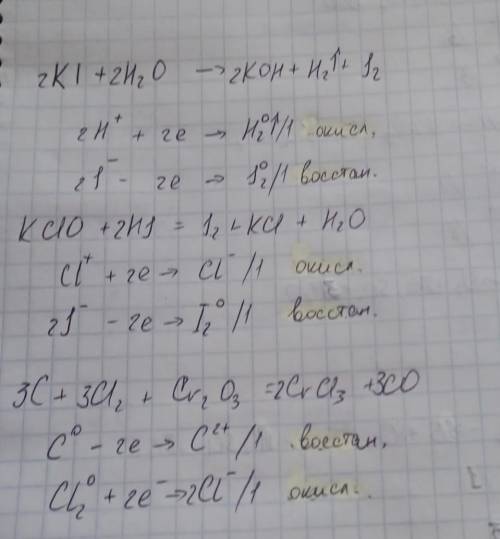 2KI + 2H₂O → 2KOH + H₂↑ + J₂
2H⁺ + 2e → H₂⁰↑/1 окисл.
2J⁻ - 2e → J₂⁰/1 восстан.
KClO + 2HJ = J₂ + KCl + H₂O
Cl⁺ + 2e → Cl⁻/1 окисл.
2J⁻ - 2e → I₂⁰/1 восстан.
3C + 3Cl₂ + Cr₂O₃ = 2CrCl₃ + 3CO
C⁰ - 2e → C²⁺/1 восстан.
Cl₂⁰ + 2e⁻ → 2Cl⁻/1 окисл.